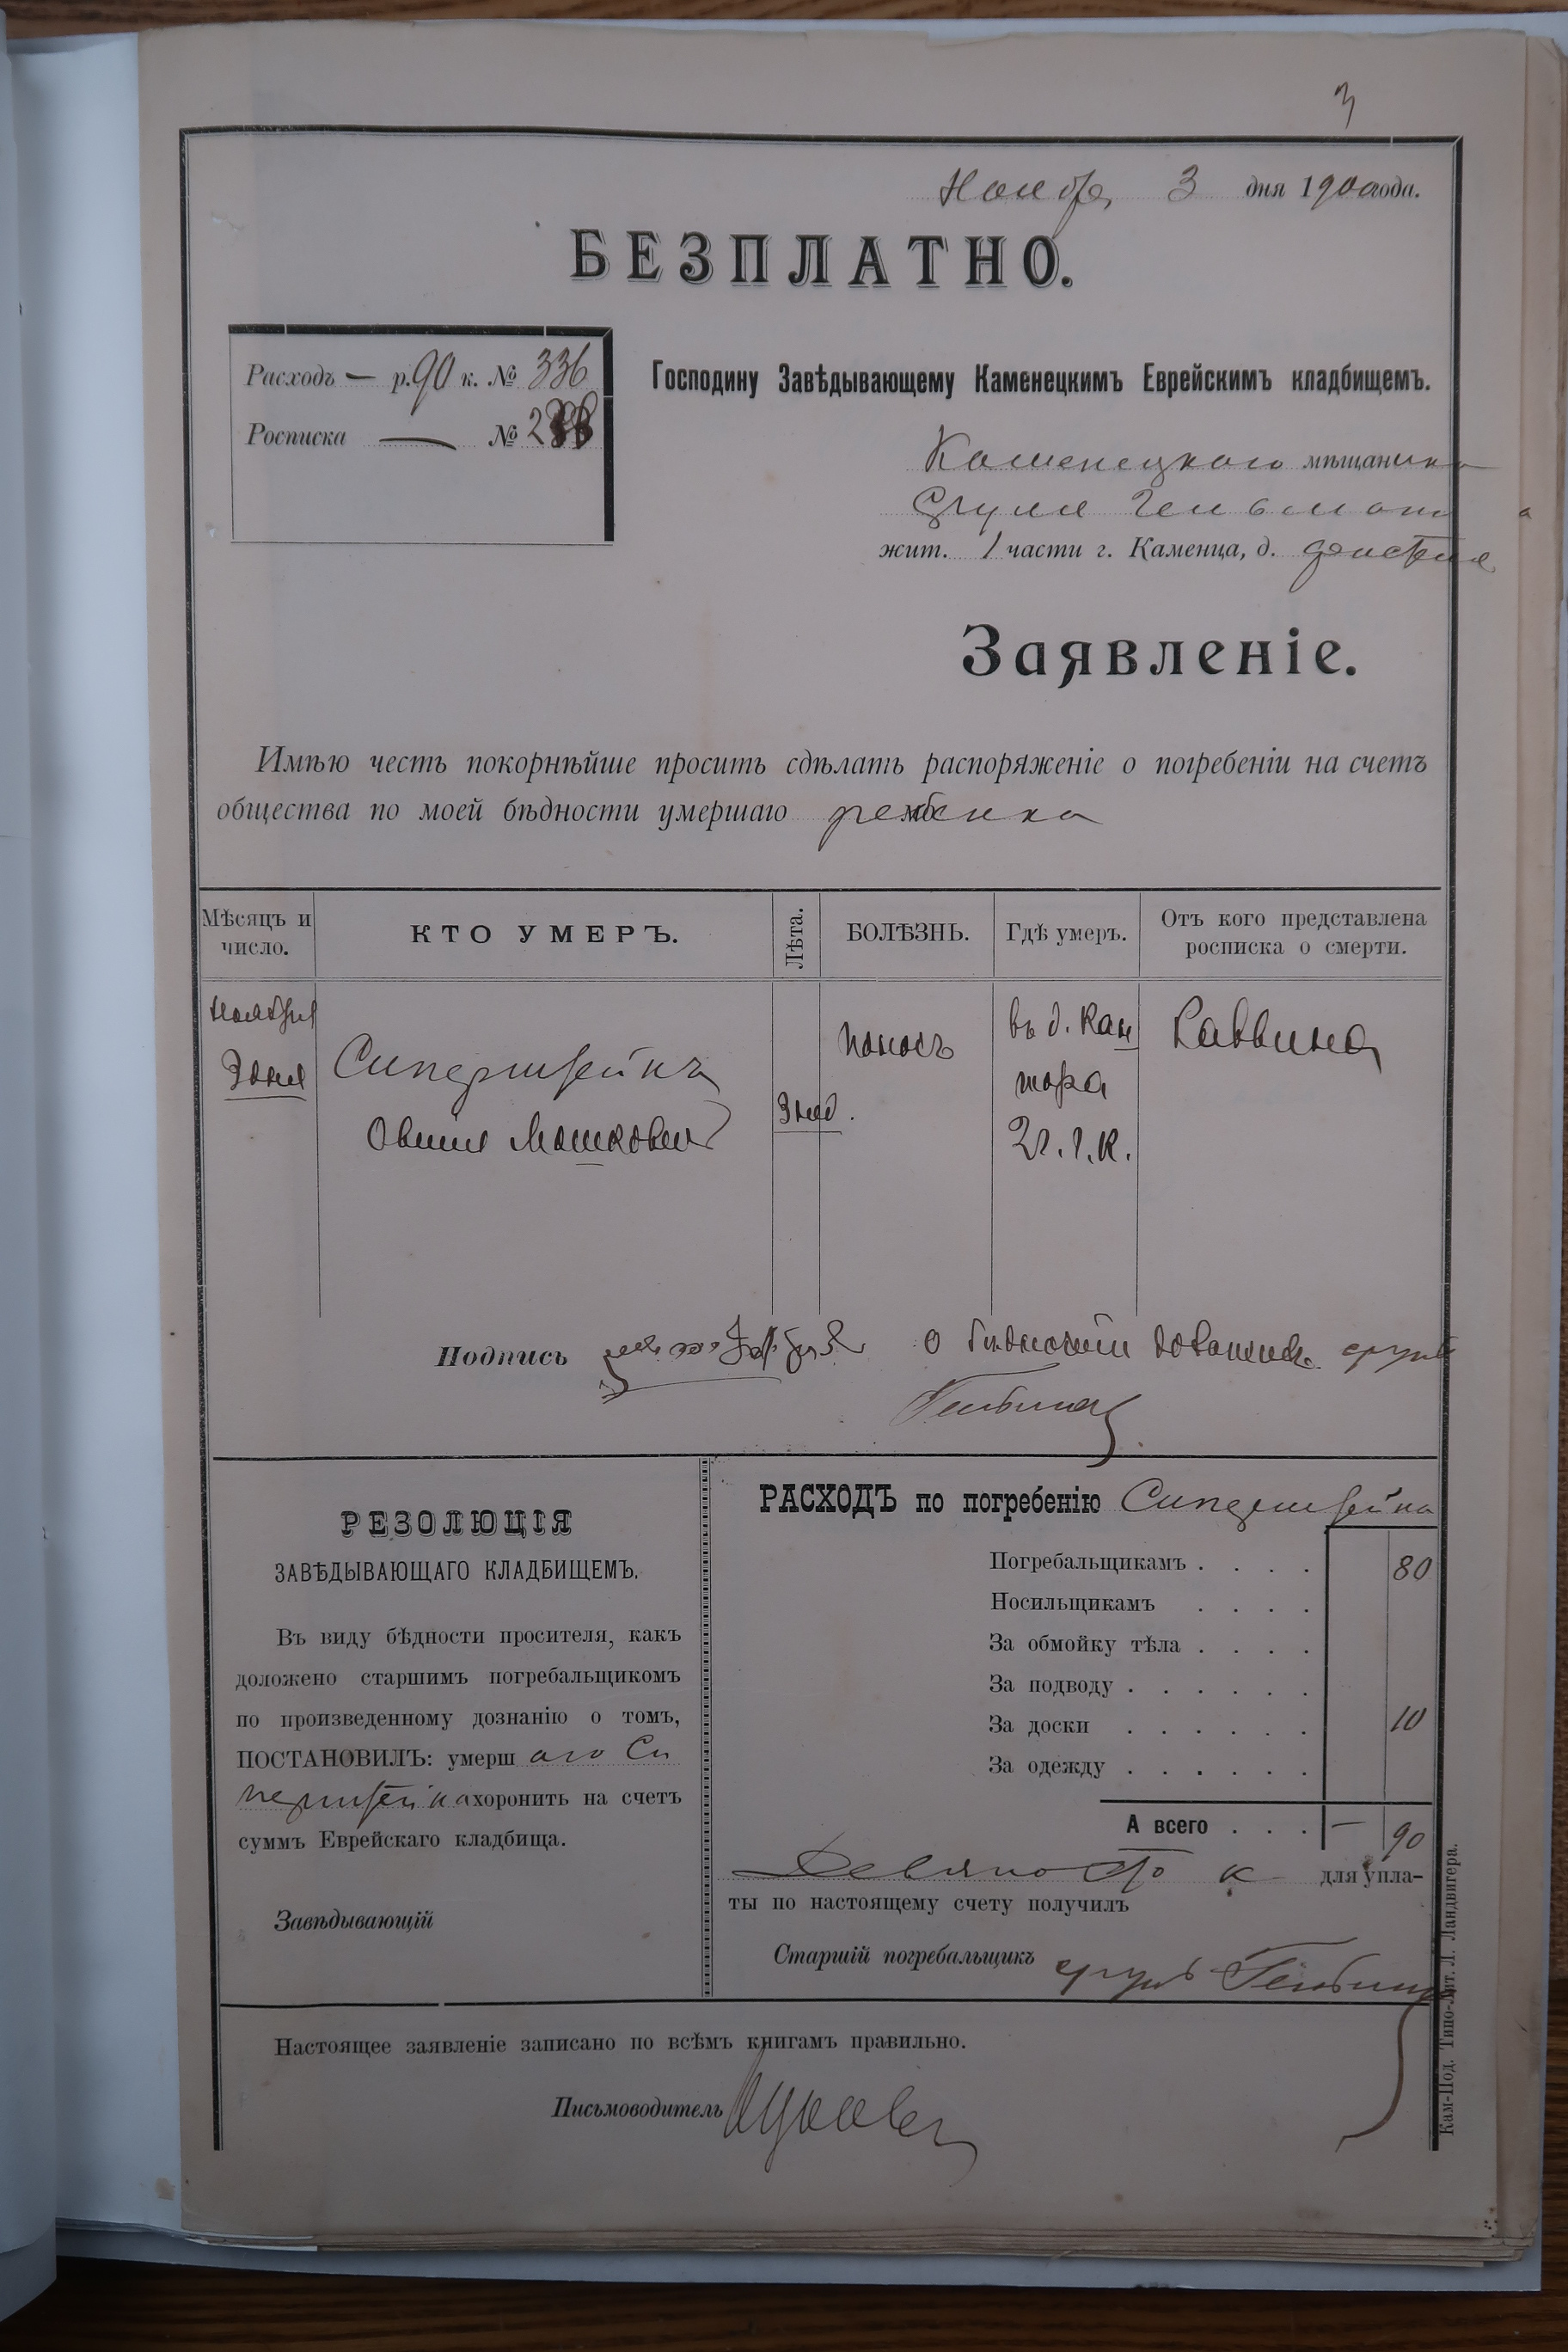 3
Ноября 3 дня 1900 года.
БЕЗПЛАТНО.
Расходъ — р. 90 к. № 336
Росписка — №
Господину Завѣдывающему Каменецкимъ Еврейскимъ кладбищемъ.
Каменецкого мѣщанина
Сруля Гельмана
жит. 1 части г. Каменца, д.
Заявленіе.
Имѣю честь покорнѣйше просить сдѣлать распоряженіе о погребеніи на счетъ
общества по моей бѣдности умершаго ребенка
Мѣсяцъ и число.
КТО УМЕРЪ.
Лѣта.
БОЛѢЗНЬ.
Гдѣ умеръ.
Отъ кого представлена росписка о смерти.
Ноября
3 дня
Сиперштейнъ
Овшия Мошковичъ
3 нед.
поносъ
въ д. Кан
тора
2 ч. г. К.
Раввина
Подпись
о бѣдности дознание сруль
Гельман
РЕЗОЛЮЦІЯ
ЗАВѢДЫВАЮЩАГО КЛАДБИЩЕМЪ.
Въ виду бѣдности просителя, какъ
доложено старшимъ погребальщикомъ
по произведенному дознанію о томъ,
ПОСТАНОВИЛЪ: умерш аго Си
перштейна хоронить на счетъ
суммъ Еврейскаго кладбища.
Завѣдывающій
РАСХОДЪ по погребенію Сиперштейна
Погребальщикамъ . . . . 80
Носильщикамъ . . . .
За обмойку тѣла . . . .
За подводу . . . . . .
За доски . . . . . . 10
За одежду . . . . . .
А всего . . . — 90
Девяносто к для упла-
ты по настоящему счету получилъ
Старшій погребальщикъ сруль Гельман
Настоящее заявленіе записано по всѣмъ книгамъ правильно.
Письмоводитель
Кам-Под. Типо-Лит. Л. Ландвигера.